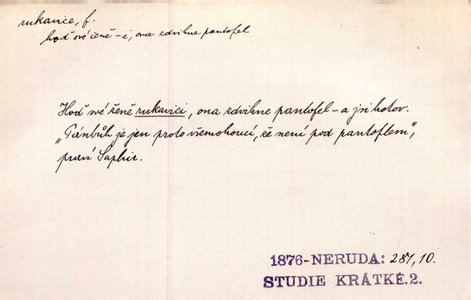 rukavice, f.
hoď své ženě -i, ona zdvihne pantofel
Hoď své ženě rukavici, ona zdvihne pantofel – a jsi hotov.
„Pánbůh je jen proto všemohoucí, že není pod pantoflem“,
praví Saphir.
1876-NERUDA: 281,10.
STUDIE KRÁTKÉ.2.